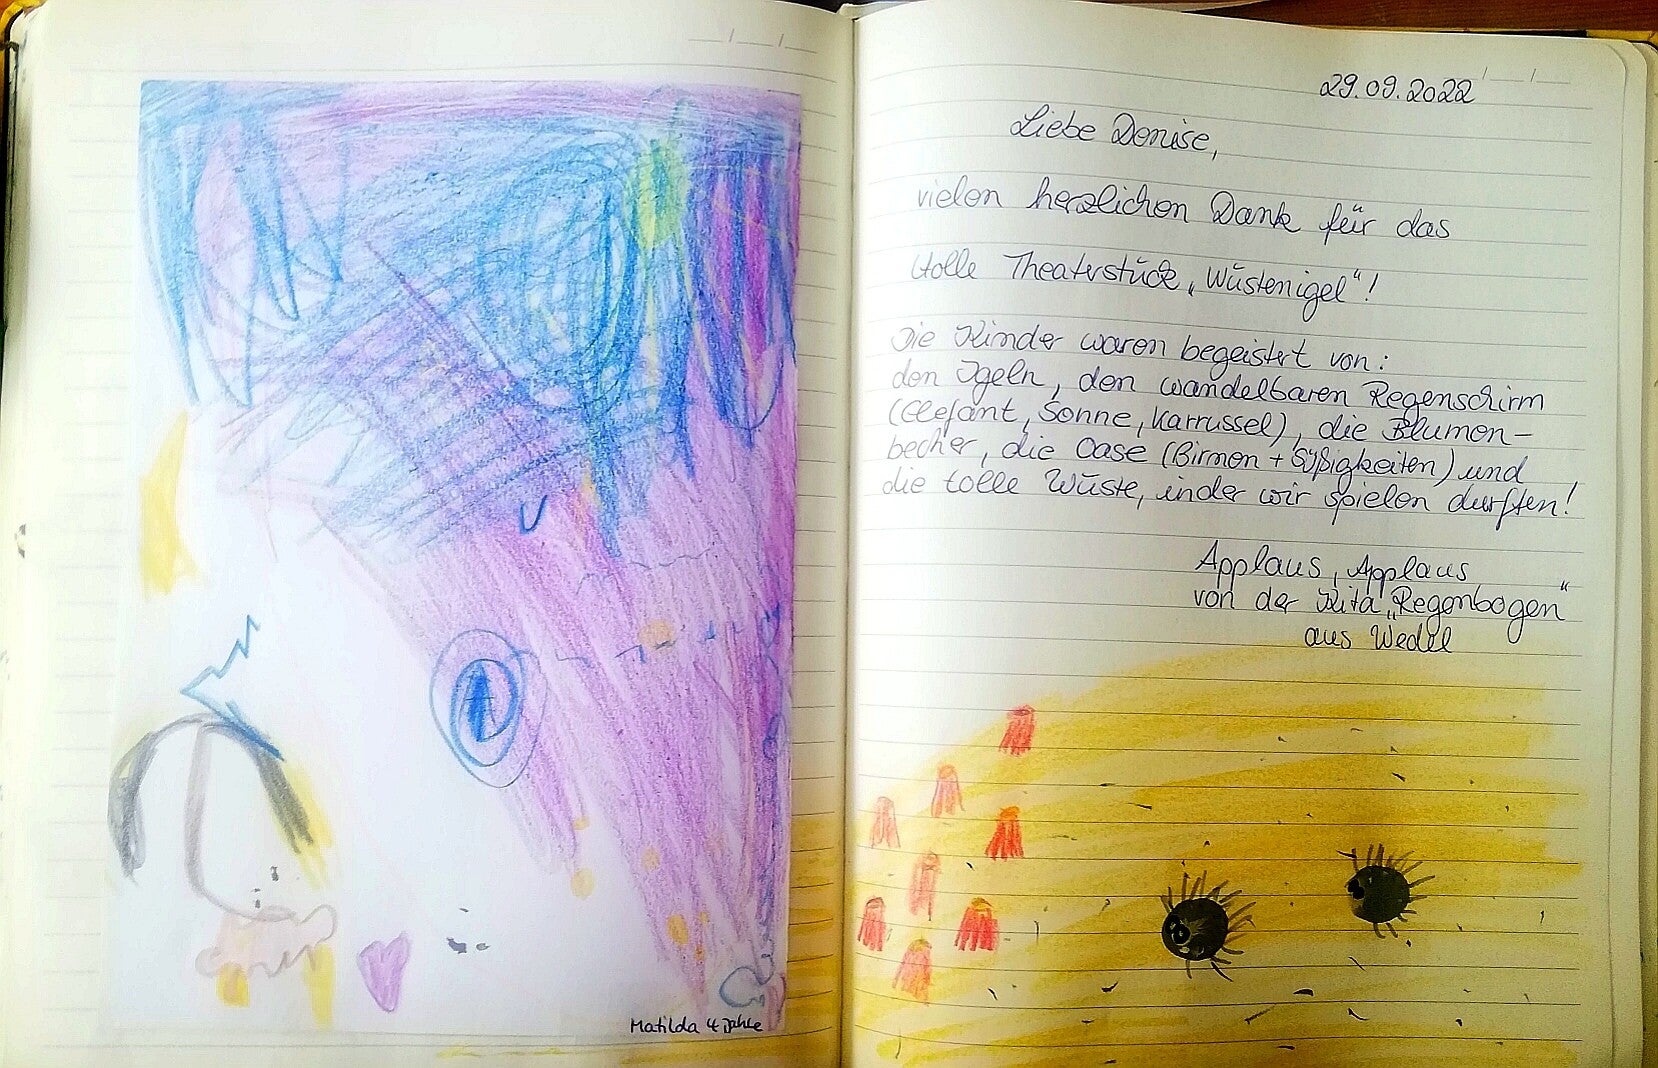 Matilda 4 Jahre
29.09.2022
Liebe Denise,
vielen herzlichen Dank für das
tolle Theaterstück „Wüstenigel“!
Die Kinder waren begeistert von:
den Igeln, den wandelbaren Regenschirm
(Elefant, Sonne, Karrussel), die Blumen-
becher, die Oase (Birnen + Süßigkeiten) und
die tolle Wüste, in der wir spielen durften!
Applaus, Applaus
von der Kita „Regenbogen“
aus Wedel